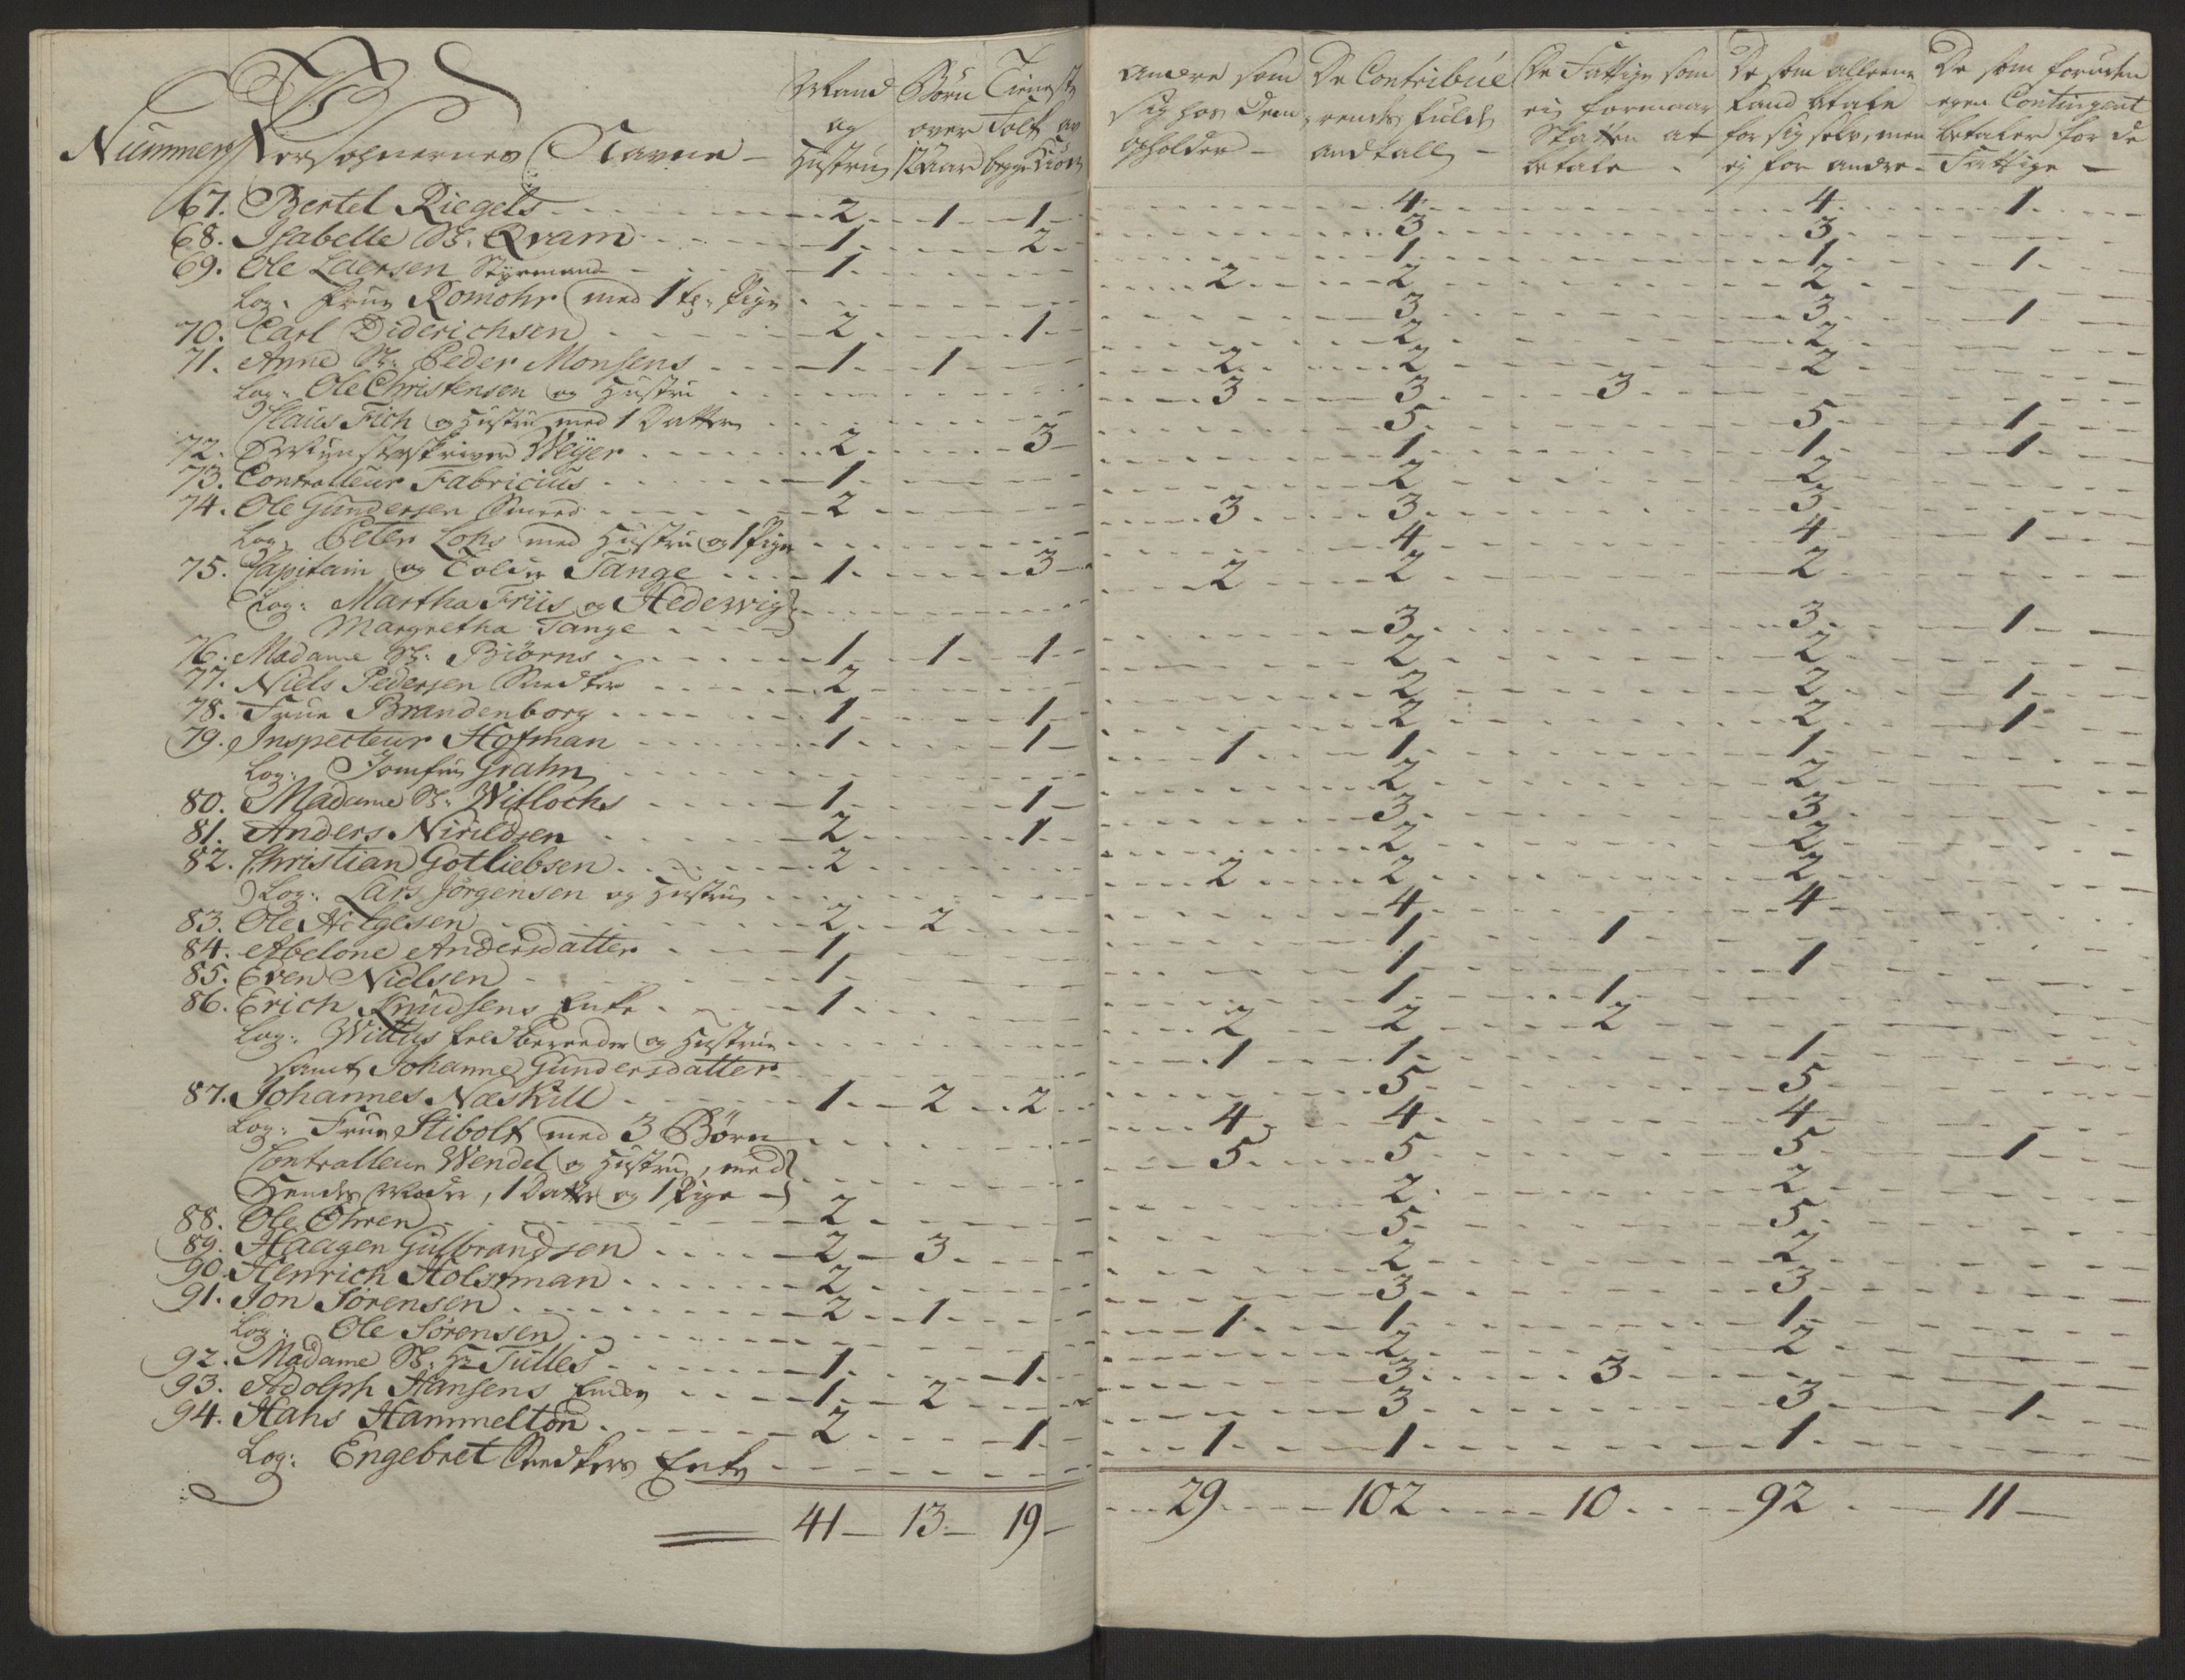 Nummer Persohnernes Navne - Mand og Hustru Børn over 12 Aar Tieneste Folk av begge Kiøn Andre som sig hos dem opholder - De Contribuerendes fulde Andtall - De Fattige som ei formaar Skatten at betale - De som alleene kand betale for sig selv, men ej for andre - De som foruden egen Contingent betaler for de Fattige -
67. Bertel Riegels 2 1 1 4 4 1
68. Isabelle Sl. Qvam 1 2 3 3
69. Ole Laersen Styrmand 1 1 1 1
Log. Frue Romohr med 1 Pige 2 2 2
70. Carl Diderichsen 2 1 3 3 1
71. Anne Sl. Peder Monsens 1 1 2 2
Log. Ole Christensen og Hustru 2 2 2
Claus Fich og Hustru med 1 Datter 3 3 3
72. Mynsterskriver Weyer 2 3 5 5 1
73. Controlleur Fabricius 1 1 1 1
74. Ole Gundersen Smed 2 2 2
Log. Peter Lohs med Hustru og 1 Pige 3 3 3
75. Capitain og Tolder Tange 1 3 4 4 1
Log: Martha Friis og Hedewig 2 2 2
Margretha Tange
76. Madame Sl. Biørns 1 1 1 3 3 1
77. Niels Pedersen Snedker 2 2 2
78. Frue Brandenborg 1 1 2 2 1
79. Inspecteur Hofman 1 1 2 2 1
Log: Jomfru Grahn 1 1 1
80. Madame Sl. Witlochs 1 1 2 2
81. Anders Nirildsen 2 1 3 3
82. Christian Gotliebsen 2 2 2
Log: Lars Jørgensen og Hustru 2 2 2
83. Ole Helgesen 2 2 4 4
84. Abelone Andersdatter 1 1 1
85. Even Nielsen 1 1 1
86. Erich Knudsens Enke 1 1 1
Log: Willus Feldbereder og Hustrue 2 2 2
samt Johanne Gundersdatter 1 1 1
87. Johannes Næskill 1 2 2 5 5
Log: Frue Stibolt med 3 Børn 4 4 4
Controlleur Wendel og Hustru, med 5 5 5 1
Hendes Moder, 1 Datter og 1 Pige -
88. Ole Ohren 2 2 2
89. Haagen Gulbrandsen 2 3 5 5
90. Henrich Holstman 2 2 2
91. Jon Sørensen 2 1 3 3
Log: Ole Sørensen 1 1 1
92. Madame Sl. Hr Tulles 1 1 2 2
93. Adolph Hansens Enke 1 2 3 3
94. Hans Hammelton 2 1 3 3 1
Log: Engebret Snedkers Enke 1 1 1
41 - 13 - 19 - 29 102 10 92 11 -